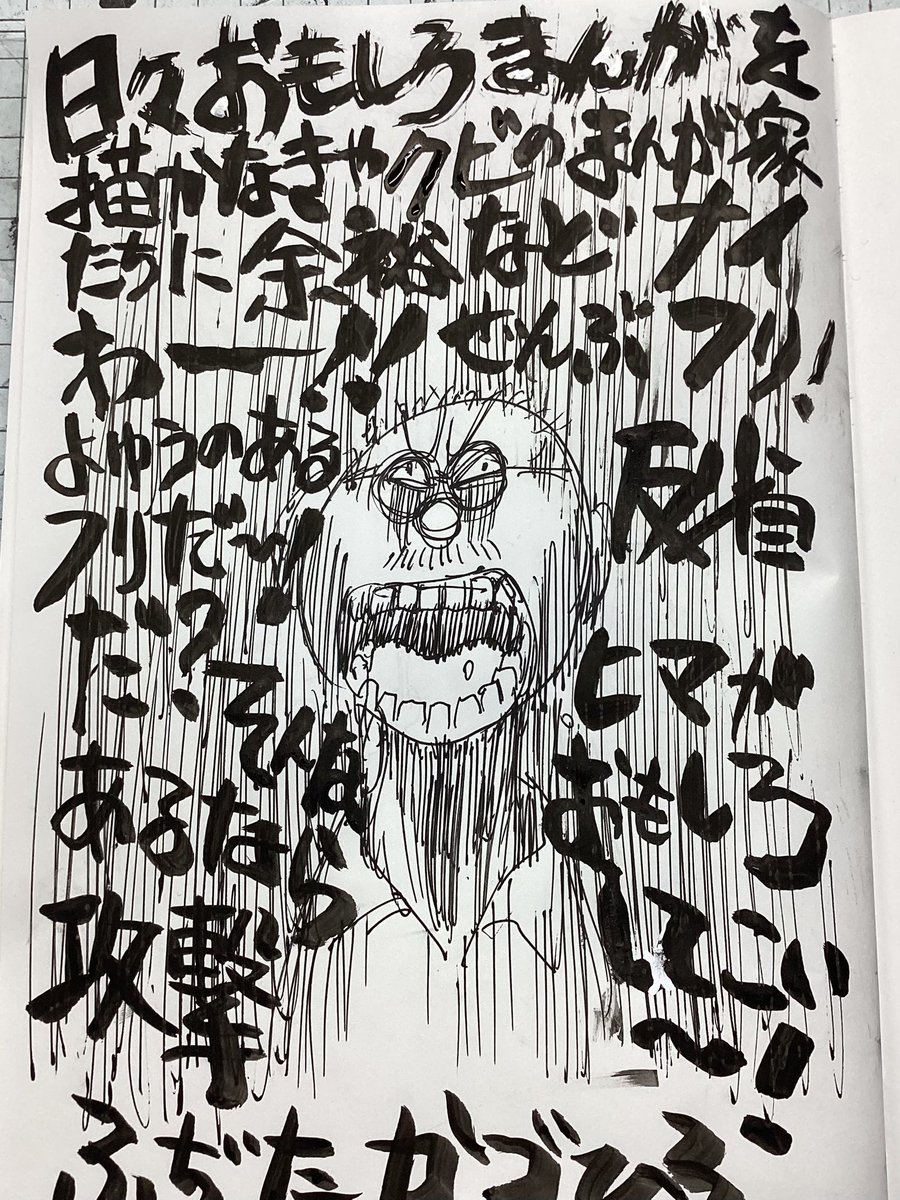 日々おもしろまんがを
描かなきゃクビのまんが家
たちに余裕などナイ
わー!!ぜんぶフリ!
よゆうのある
フリだ〜!
反省
だ?そんな
ヒマが
あるなら
おもしろ
攻撃
してこい〜!
ふぢたかづひろ